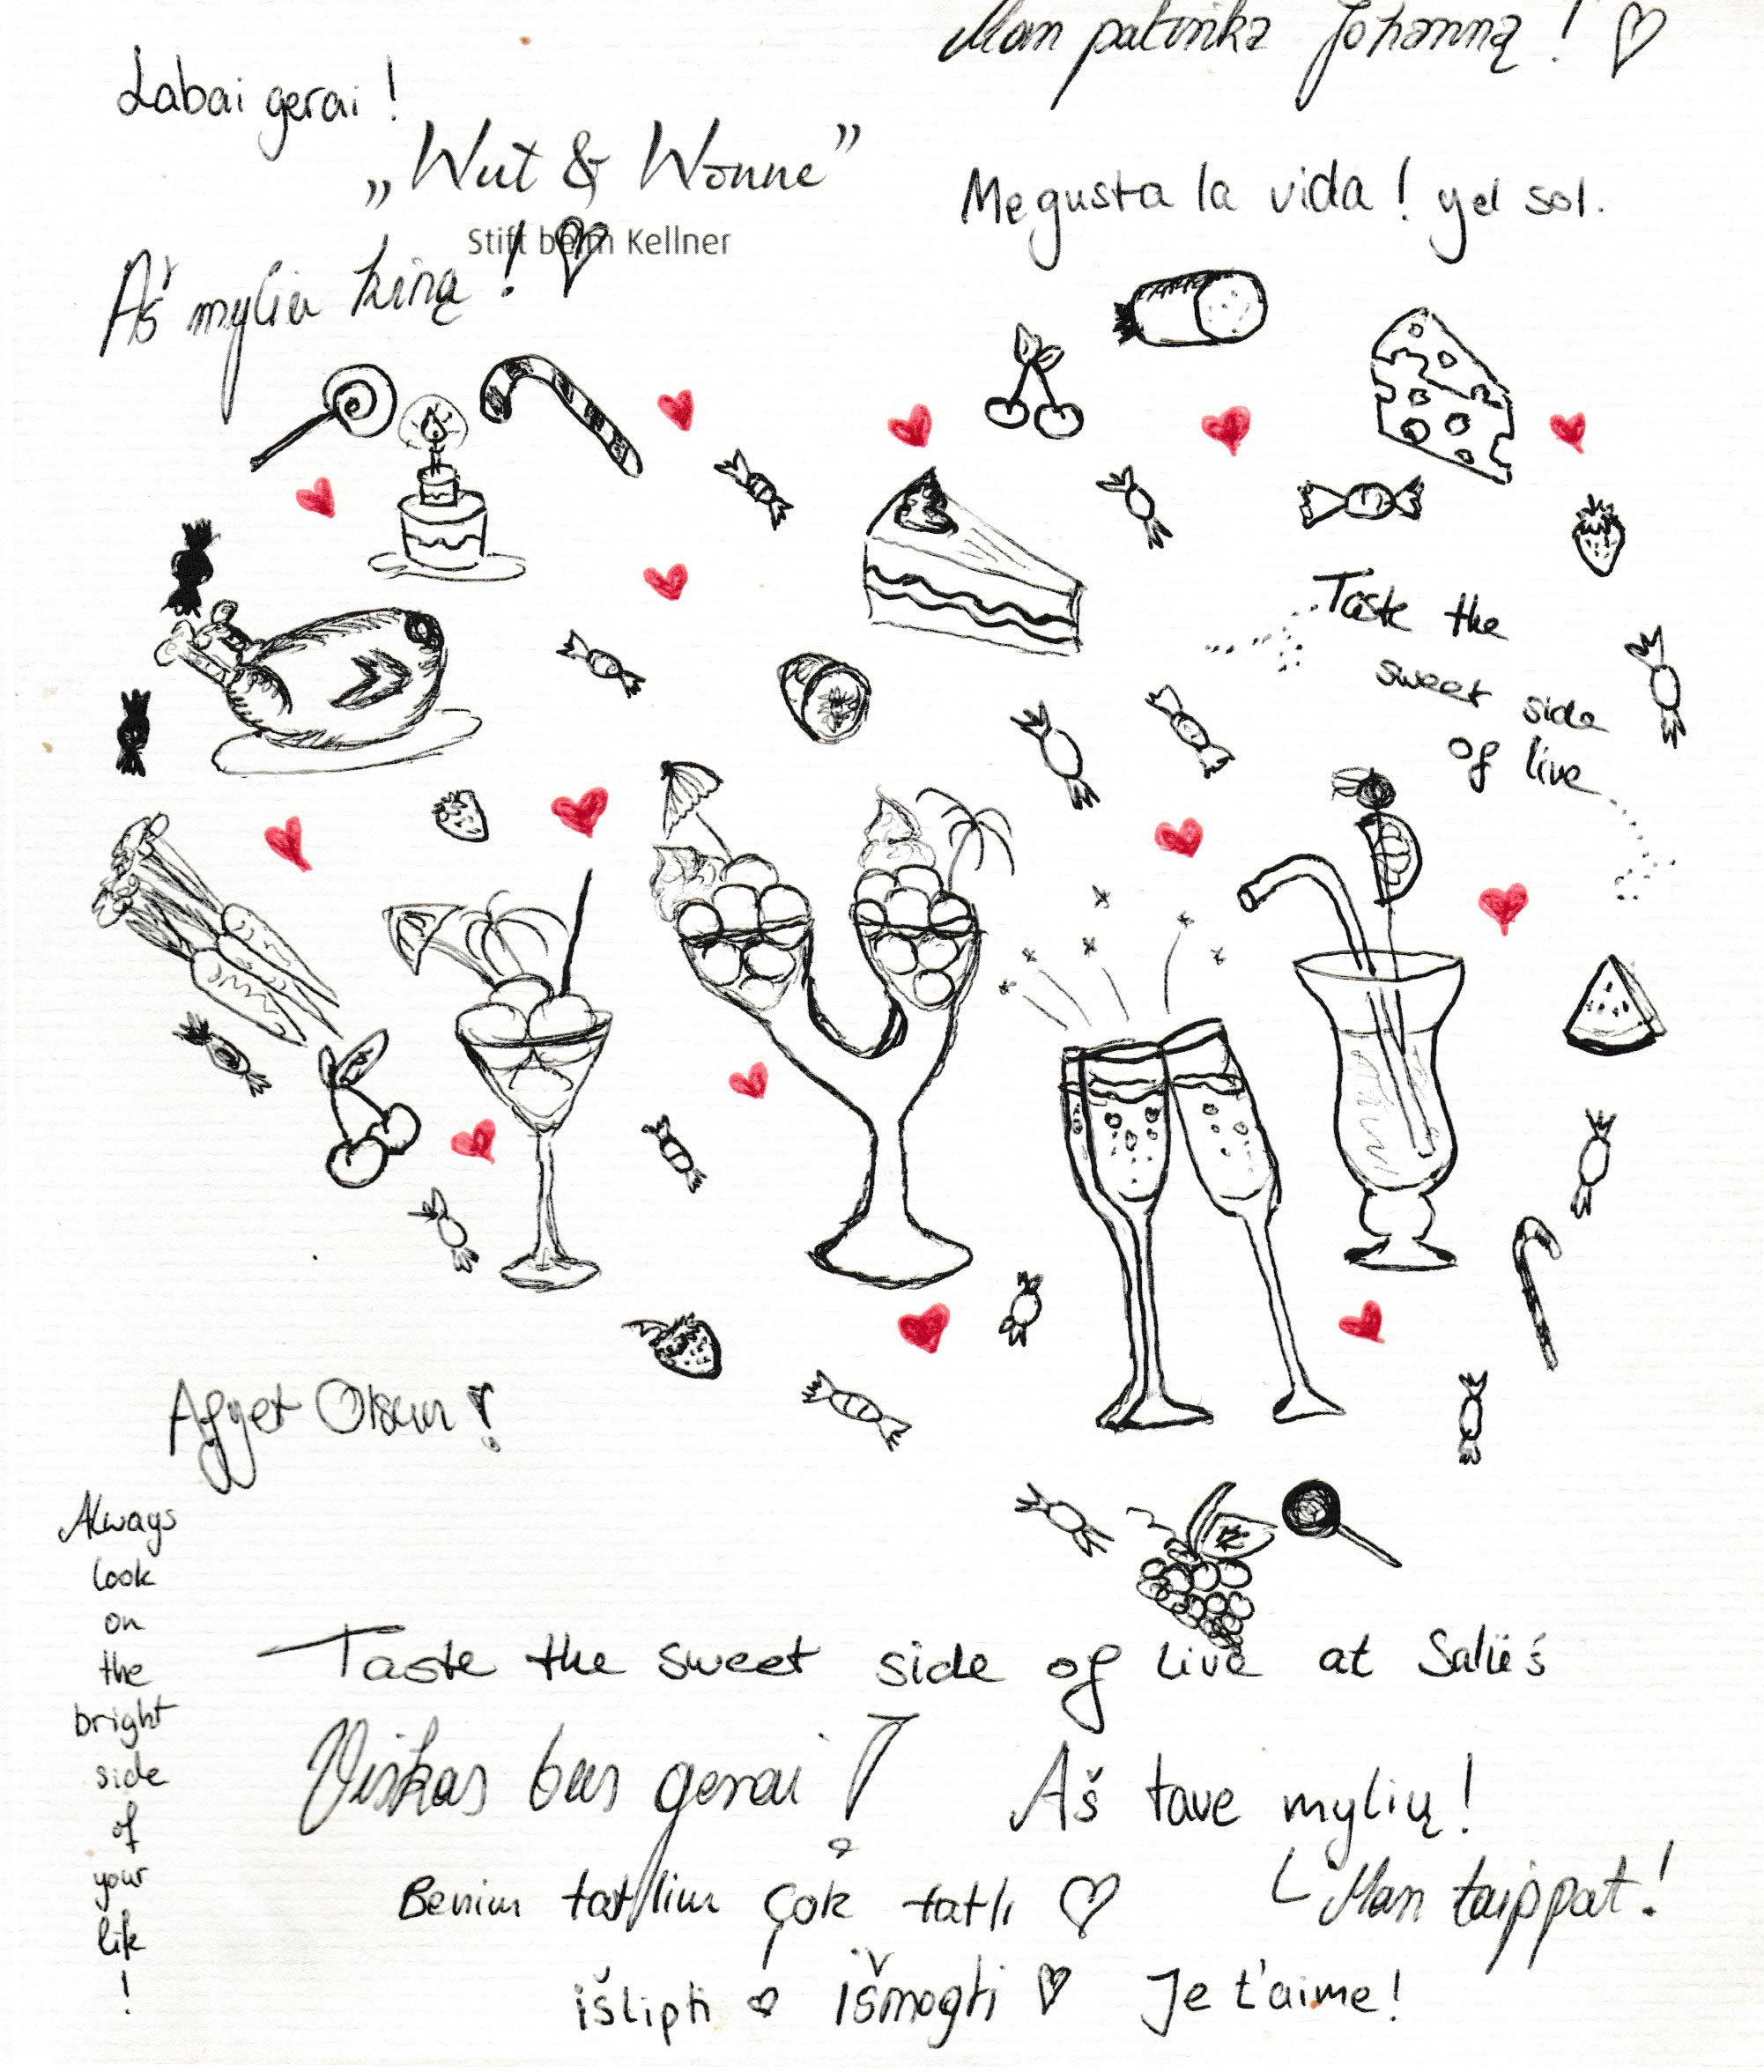 Man patinka Johanną!
Labai gerai!
„Wut & Wonne”
Stift beim Kellner
Me gusta la vida! y el sol.
Aš myliu kiną!
Taste the
sweet side
of live
Afyet Olsun!
Always
look
on
the
bright
side
of
your
life
!
Taste the sweet side of live at Salie's
Viskas bus gerai!
Aš tave mylių!
Benim tatlim çok tatlı
Man taippat!
išlipti išmogti Je t'aime!